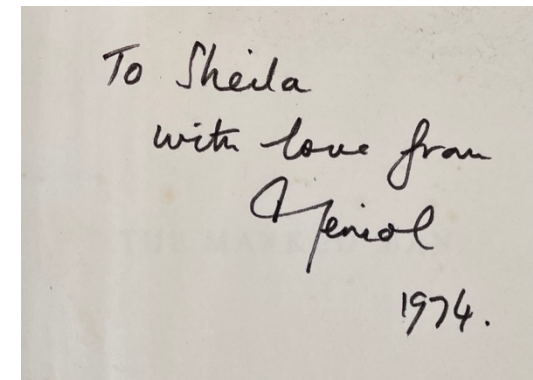 To Sheila
with love from
1974.